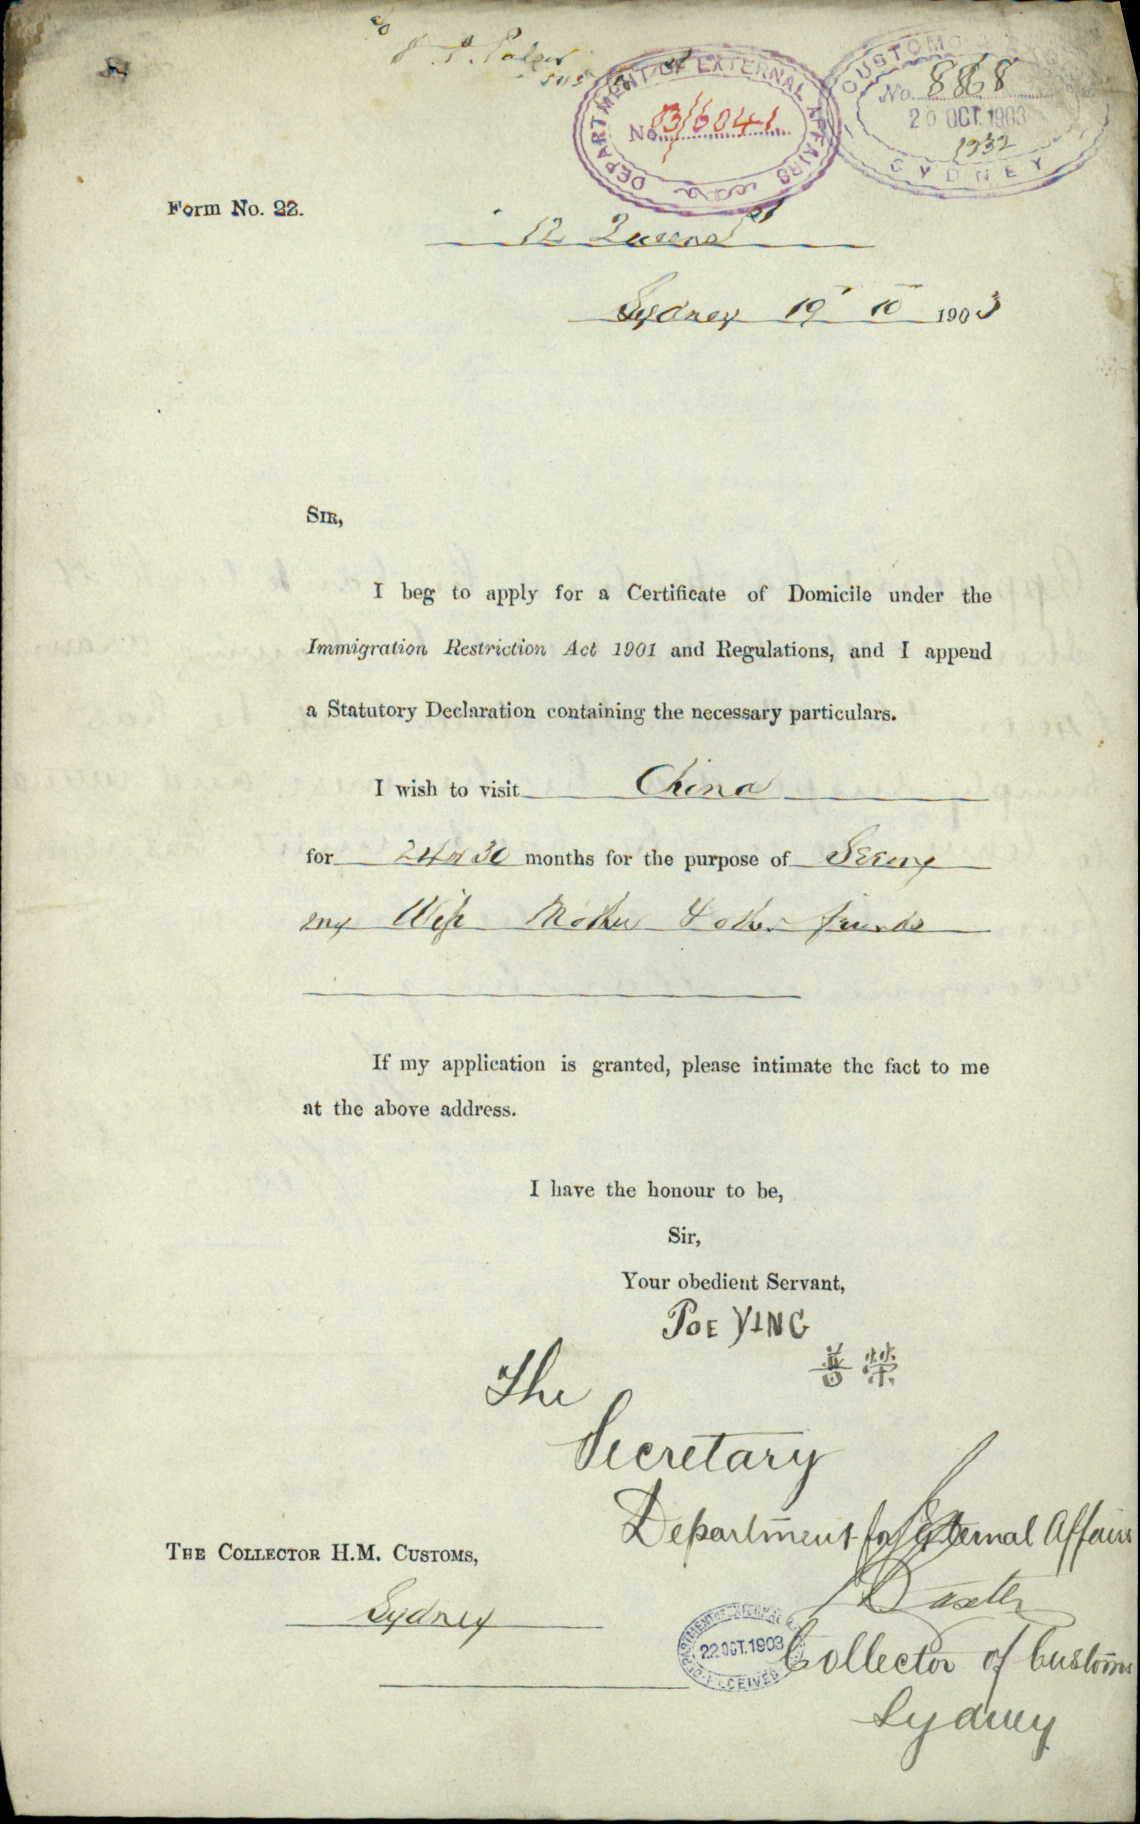 c/o
DEPARTMENT OF EXTERNAL AFFAIRS
No. 03/6041
CUSTOMS
No. 8868
20 OCT. 1903
1332
SYDNEY
Form No. 22.
12 Queens St
Sydney 19 10 1903
SIR,
I beg to apply for a Certificate of Domicile under the
Immigration Restriction Act 1901 and Regulations, and I append
a Statutory Declaration containing the necessary particulars.
I wish to visit China
for 24 or 30 months for the purpose of Seeing
my Wife Mother & other friends
If my application is granted, please intimate the fact to me
at the above address.
I have the honour to be,
Sir,
Your obedient Servant,
POE YING
普榮
The
Secretary
Department for External Affairs
Baxter
THE COLLECTOR H.M. CUSTOMS,
Sydney
22 OCT. 1903
RECEIVED
Collector of Customs
Sydney